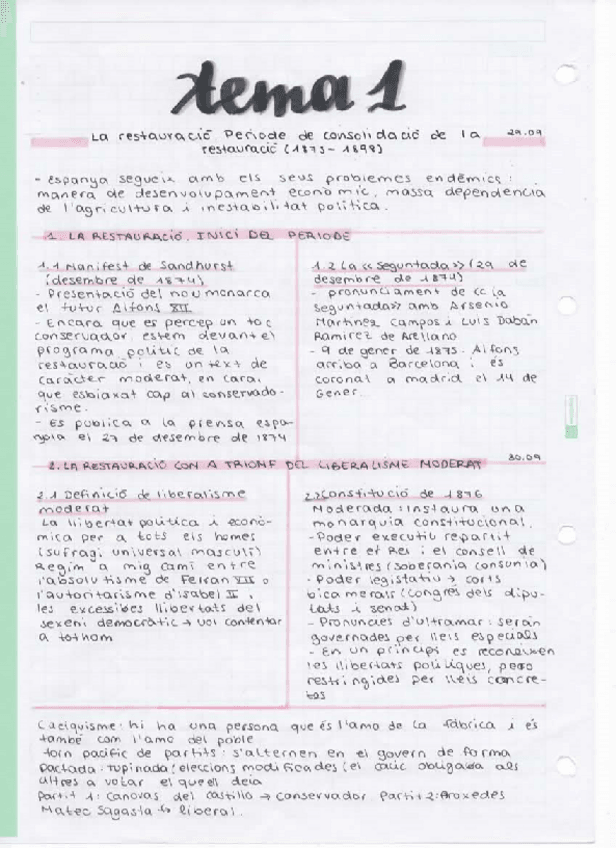 tema 1
La restauració. Periode de consolidació de la
restauració (1875-1898)
29.09
- Espanya segueix amb els seus problemes endèmics:
manera de desenvolupament econòmic, massa dependència
de l'agricultura i inestabilitat política.
1. LA RESTAURACIÓ. INICI DEL PERIODE
1.1 Manifest de Sandhurst
(desembre de 1874)
- Presentació del nou monarca
el futur Alfons XII
- Encara que es percep un toc
conservador, estem devant el
programa polític de la
restauració i és un text de
caràcter moderat, en cara
que esbiaxat cap al conservado-
risme.
- Es publica a la prensa espa-
nyola el 27 de desembre de 1874
1.2 La «seguntada» (29 de
desembre de 1874)
- pronunciament de «la
seguntada» amb Arsenio
Martínez Campos i Luis Dabán
Ramirez de Arellano
- 9 de gener de 1875. Alfons
arriba a Barcelona i és
coronal a madrid el 14 de
Gener.
2. LA RESTAURACIÓ CON A TRIOMF DEL LIBERALISME MODERAT
30.09
2.1 Definició de liberalisme
moderat
La llibertat política i econò-
mica per a tots els homes
(sufragi universal masculí)
Regim a mig camí entre
l'absolutisme de Ferran VII o
l'autoritarisme d'Isabel II i
les excessibes llibertats del
sexeni democràtic → vol contentar
a tothom
2.2 Constitució de 1876
Moderada: Instaura una
monarquia constitucional.
- Poder executiu repartit
entre el Rei i el consell de
ministres (soberania
- Poder legislatiu → corts
bicamerals (Congrés dels dipu-
tats i senat)
- Pronuncies d'ultramar: seran
governades per lleis especials
- En un principi es reconeixen
les llibertats polítiques, pero
restringides per lleis concre-
tes
Caciquisme: hi ha una persona que és l'amo de la fàbrica i és
també com l'amo del poble
torn pacífic de partits: s'alternen en el govern de forma
pactada: tupinada (eleccions modificades (el cacic obligava als
altres a votar el que ell deia
Partit 1: Canovas del castillo → conservador Partit 2: Praxedes
Mateo Sagasta → liberal.